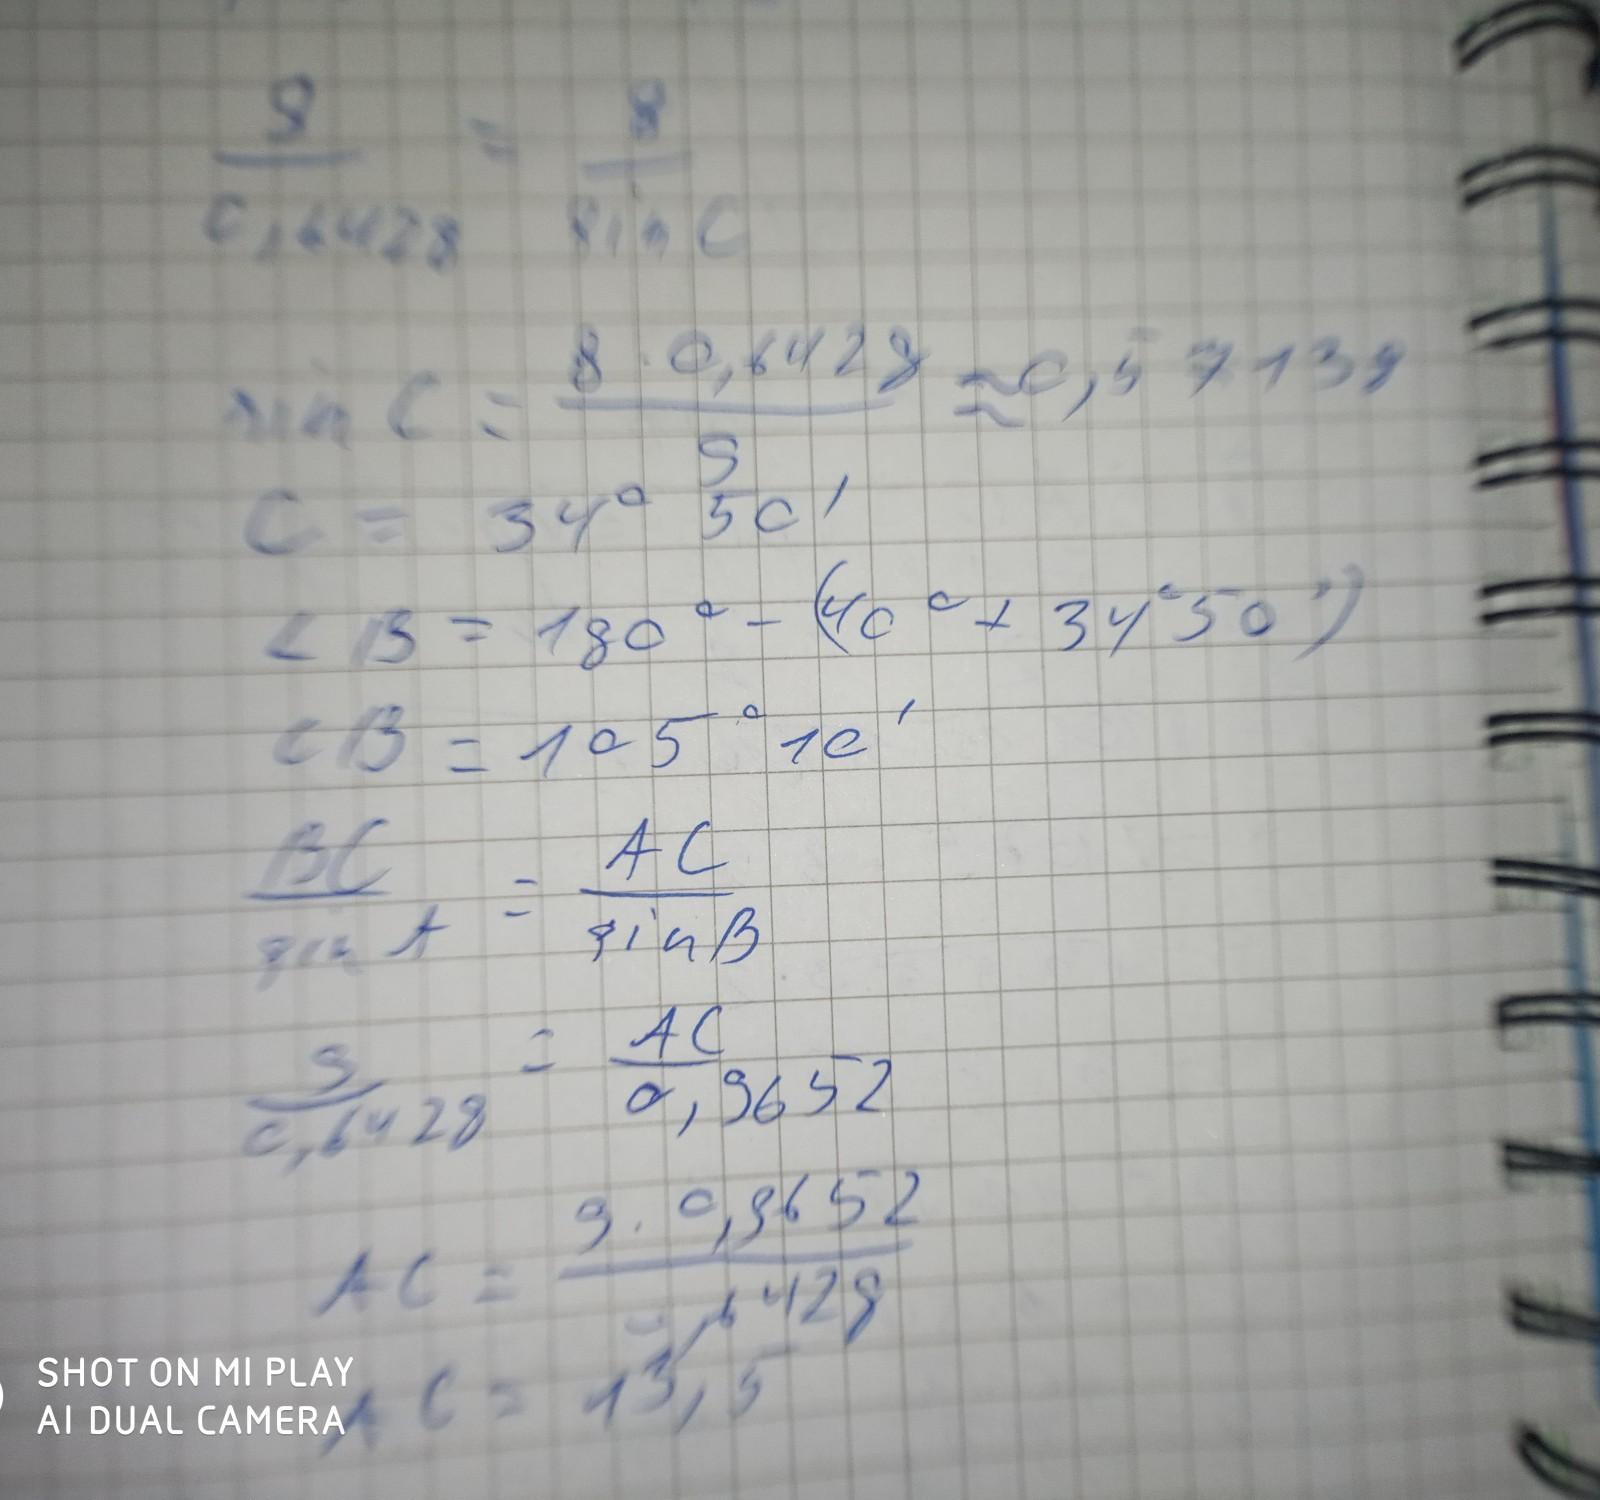 9/0,6428 = 8/sin C
sin C = 8 · 0,6428/9 ≈ 0,57138
C = 34° 50'
∠B = 180° - (40° + 34°50')
∠B = 105° 10'
BC/sin A = AC/sin B
9/0,6428 = AC/0,9652
AC = 9 · 0,9652/0,6428
AC = 13,5
SHOT ON MI PLAY
AI DUAL CAMERA